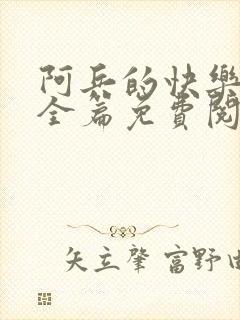 阿兵的快樂
全篇免費閱
矢立肇 富野由